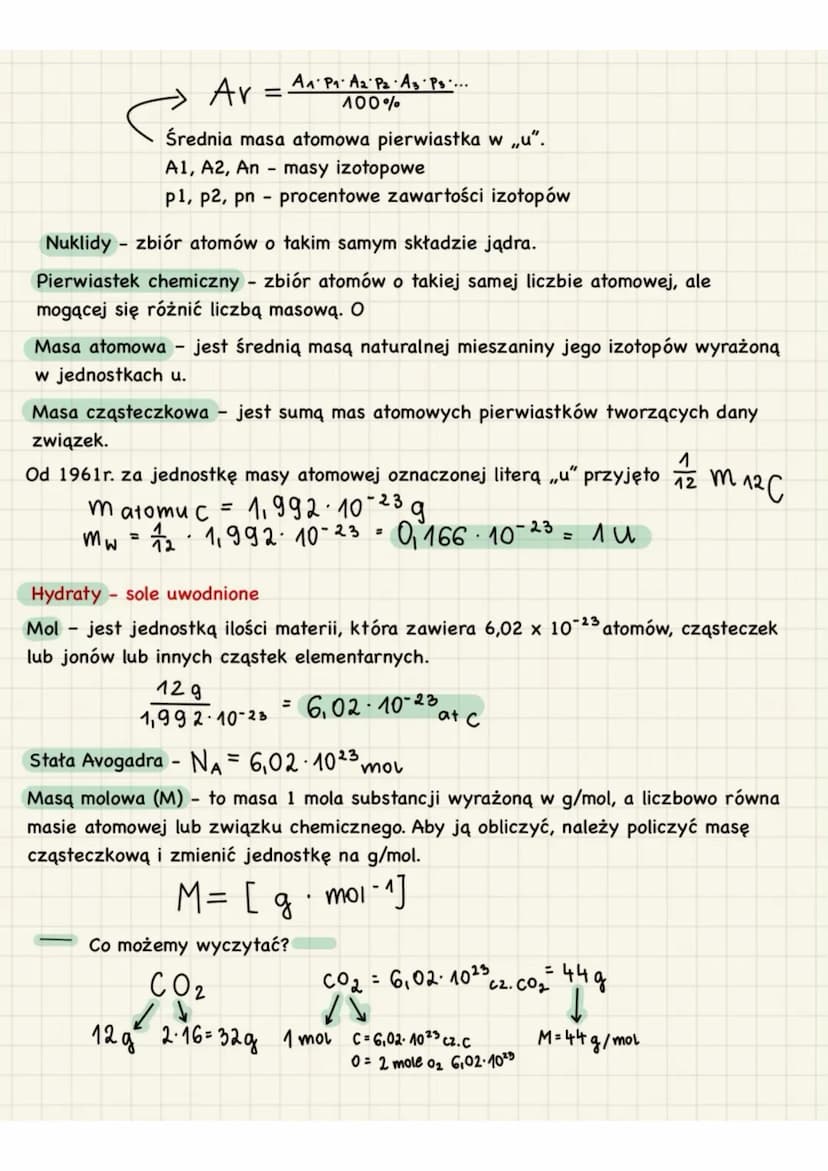 Ar = A₁·p₁·A₂·p₂·A₃·p₃·... / 100%
Średnia masa atomowa pierwiastka w „u".
A1, A2, An - masy izotopowe
p1, p2, pn - procentowe zawartości izotopów
Nuklidy - zbiór atomów o takim samym składzie jądra.
Pierwiastek chemiczny - zbiór atomów o takiej samej liczbie atomowej, ale
mogącej się różnić liczbą masową. O
Masa atomowa - jest średnią masą naturalnej mieszaniny jego izotopów wyrażoną
w jednostkach u.
Masa cząsteczkowa - jest sumą mas atomowych pierwiastków tworzących dany
związek.
Od 1961r. za jednostkę masy atomowej oznaczonej literą „u" przyjęto 1/12 m 12C
m atomu C = 1,992·10⁻²³ g
mw = 1/12 · 1,992·10⁻²³ = 0,166·10⁻²³ = 1 u
Hydraty - sole uwodnione
Mol - jest jednostką ilości materii, która zawiera 6,02 x 10⁻²³ atomów, cząsteczek
lub jonów lub innych cząstek elementarnych.
12 g / 1,992·10-23 = 6,02·10⁻²³ at C
Stała Avogadra - NA = 6,02·10²³ mol
Masą molowa (M) - to masa 1 mola substancji wyrażoną w g/mol, a liczbowo równa
masie atomowej lub związku chemicznego. Aby ją obliczyć, należy policzyć masę
cząsteczkową i zmienić jednostkę na g/mol.
M = [g · mol⁻¹]
Co możemy wyczytać?
CO₂ CO₂ = 6,02·10²³ cz. CO₂ = 44 g
12g 2·16=32g 1 mol C=6,02·10²³ cz.C M=44 g/mol
O = 2 mole O₂ 6,02·10²³